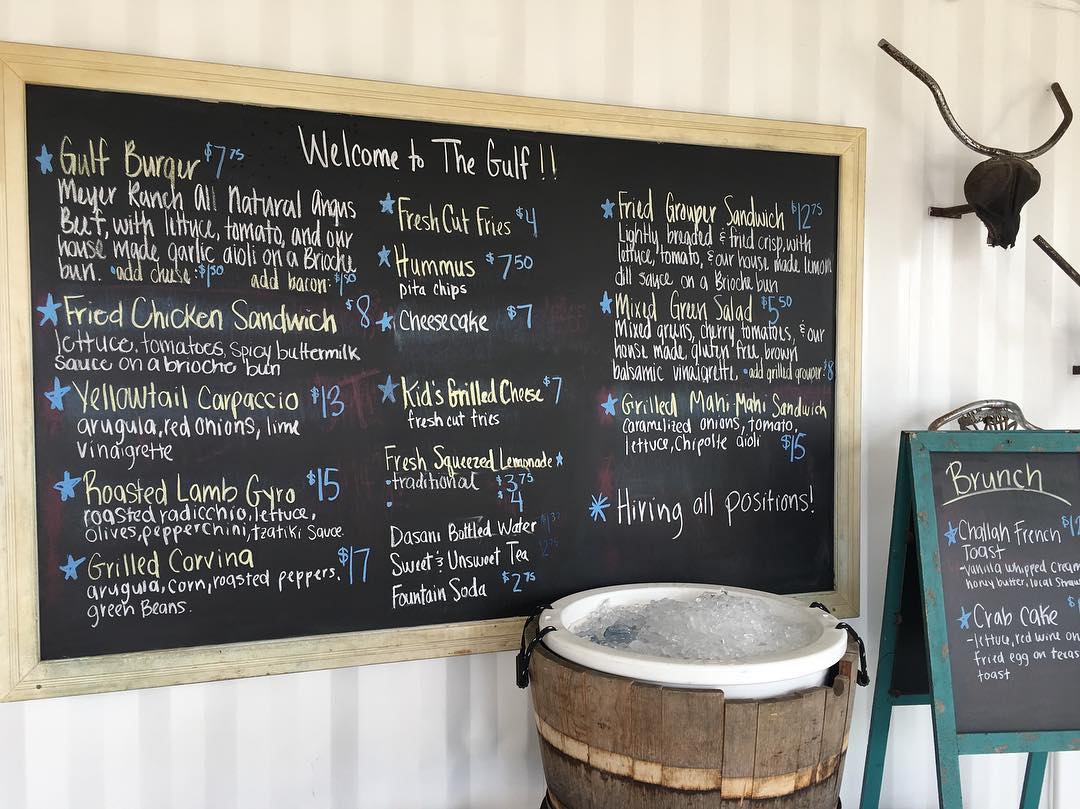 Welcome to The Gulf !!
Gulf Burger $7.75
Meyer Ranch All Natural Angus
Beef, with lettuce, tomato, and our
house made garlic aioli on a Brioche
bun. •add cheese: $1.50 add bacon: $1.50
Fried Chicken Sandwich $8
lettuce, tomatoes, spicy buttermilk
sauce on a brioche bun
Yellowtail Carpaccio $13
arugula, red onions, lime
vinaigrette
Roasted Lamb Gyro $15
roasted radicchio, lettuce,
olives, pepperchini, tzatiki sauce.
Grilled Corvina $17
arugula, corn, roasted peppers,
green Beans.
Fresh Cut Fries $4
Hummus $7.50
pita chips
Cheesecake $7
Kid's Grilled Cheese $7
fresh cut fries
Fresh Squeezed Lemonade
•traditional $3.75
• $4
Dasani Bottled Water
Sweet & Unsweet Tea
Fountain Soda $2.75
Fried Grouper Sandwich $12.75
Lightly breaded & fried crisp, with
lettuce, tomato, & our house made lemon
dill sauce on a Brioche bun
Mixed Green Salad $5.50
Mixed greens, cherry tomatoes, & our
house made, gluten free, brown
balsamic vinaigrette. •add grilled grouper: $8
Grilled Mahi-Mahi Sandwich
caramelized onions, tomato,
lettuce, Chipolte aioli $15
Hiring all positions!
Brunch
Challah French
Toast
-vanilla whipped cream
honey butter, local
Crab Cake
-lettuce, red wine
fried egg on texas
toast